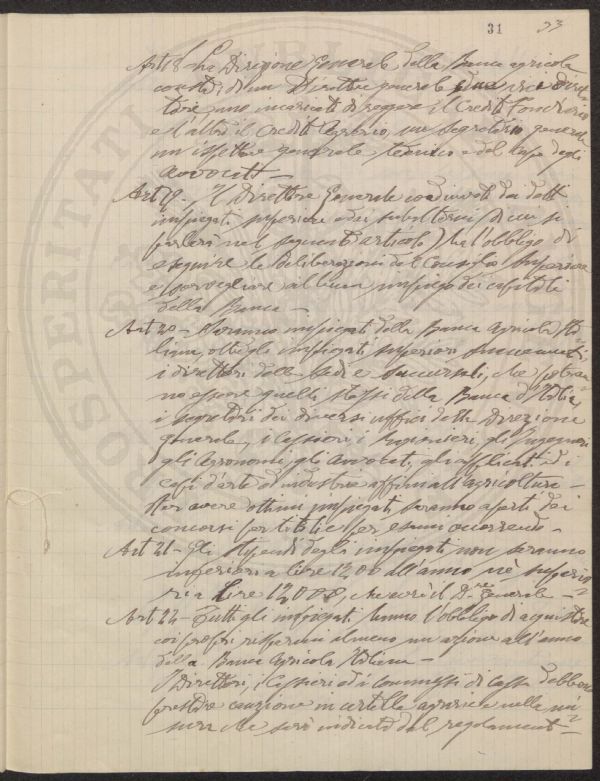 31 33
Art 18 - La Direzione Generale della Banca agricola
consta di un Direttore generale due vice diret
tore, uno incaricato di reggere il Credito Fondiario
e l'altro il Credito Agrario, un segretario generale
un ispettore generale tecnico e del capo degli
avvocati -
Art 19. - Il Direttore Generale coadiuvato dai detti
impiegati superiori e dei subalterni (di cui si
parlerà nel seguente articolo) ha l'obbligo di
eseguire le deliberazioni del Consiglio Superiore
e sorvegliare al buon impiego dei capitali
della Banca -
Art 20 - Saranno impiegati della Banca Agricola Ita
liana, oltre gli impiegati superiori
i direttori delle sedi e succursali, che potran
no essere quelli stessi della Banca d'Italia,
i segretari dei diversi uffici della Direzione
generale, i Cassieri, i gli Ingegneri
gli Agronomi, gli Avvocati, gli applicati ed i
capi d'arte di industrie affini all'agricoltura -
Per avere ottimi impiegati saranno aperti dei
concorsi per titoli e per esami occorrendo -
Art 21 - Gli stipendi degli impiegati non saranno
inferiori a lire 1200 all'anno nè superio
ri a Lire 12000, che avrà il Dre Generale -
Art 22 - Tutti gli impiegati hanno l'obbligo di acquistare
coi propri risparmi almeno un'azione all'anno
della Banca Agricola Italiana -
I Direttori, i Cassieri ed i Commessi di Cassa debbono
prestare cauzione in cartelle agrarie nella mi
sura che sarà indicata dal regolamento -